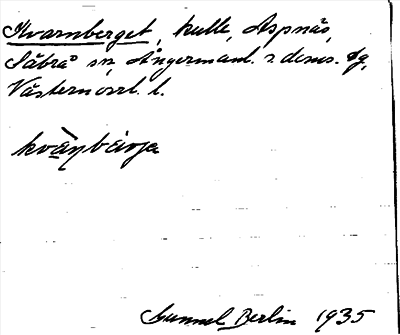 Kvarnberget, kulle, Aspnäs,
Säbrå sn, Ångermanl. s. doms. sg,
Västernorrl. l.
kvàṇbærja
Gunnel Berlin 1935